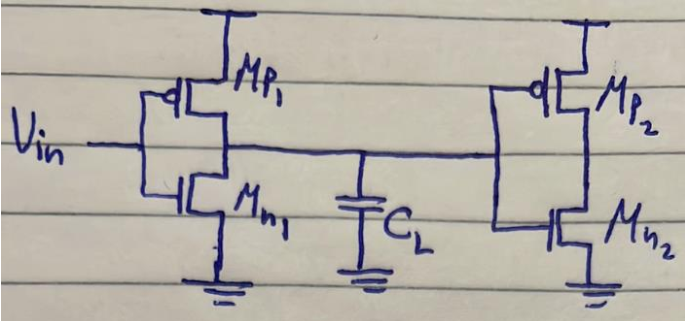 Vin
Mp1
Mn1
CL
Mp2
Mn2